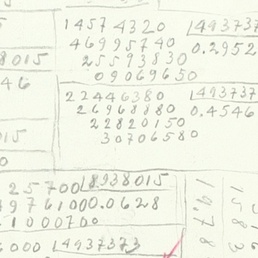 14574320 493737
46995740 0.2952
25593830
09069650
8015
46
22446380 493737
26968880 0.4546
22820150
30706580
015
0
25700 8938015
49761000.0628
1000700
6000 14937373
1978
1583